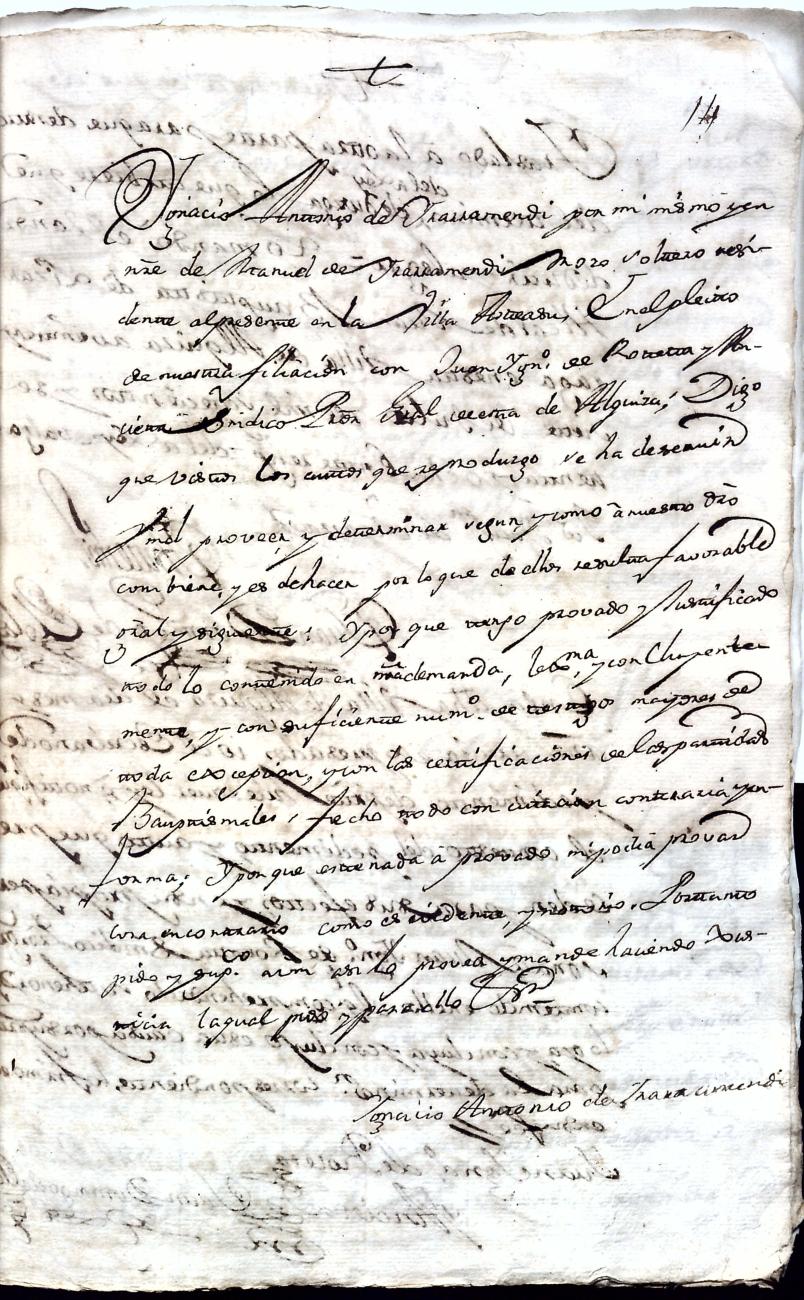 14
Ignacio Antonio de Irarramendi por mi mismo y en
nre de Manuel de Irarramendi Mozo soltero resi-
dente al presente en la Villa Asteasu; En el pleito
de nuestra filiación con Juan Ygn.º de Rotetta y
Sindico Pror Gral de esta de Alquiza; Digo
que vistos los autos que reproduzgo se ha de servir
Vmd proveer, y determinar segun, y como à nuestro dro
combiene, y es de hacer por lo que de ellos resulta favorable
gral y siguiente: Y por que tengo provado y Justificado
todo lo contenido en nra demanda, y con
mente, y con suficiente num.º de testigos mayores de
toda excepcion, y con las certificaciones de las partidas
Bauptismales, fecho todo con citación contraria y en
forma; Y por que este nada a provado ni podia provar
cosa en contrario como es evidente, y notorio. Por tanto
pido y sup.co a vm asi lo provea y mande haciendo Jus-
ticia la qual pido y para ello Ett.ª
Ignacio Antonio de Irarramendi